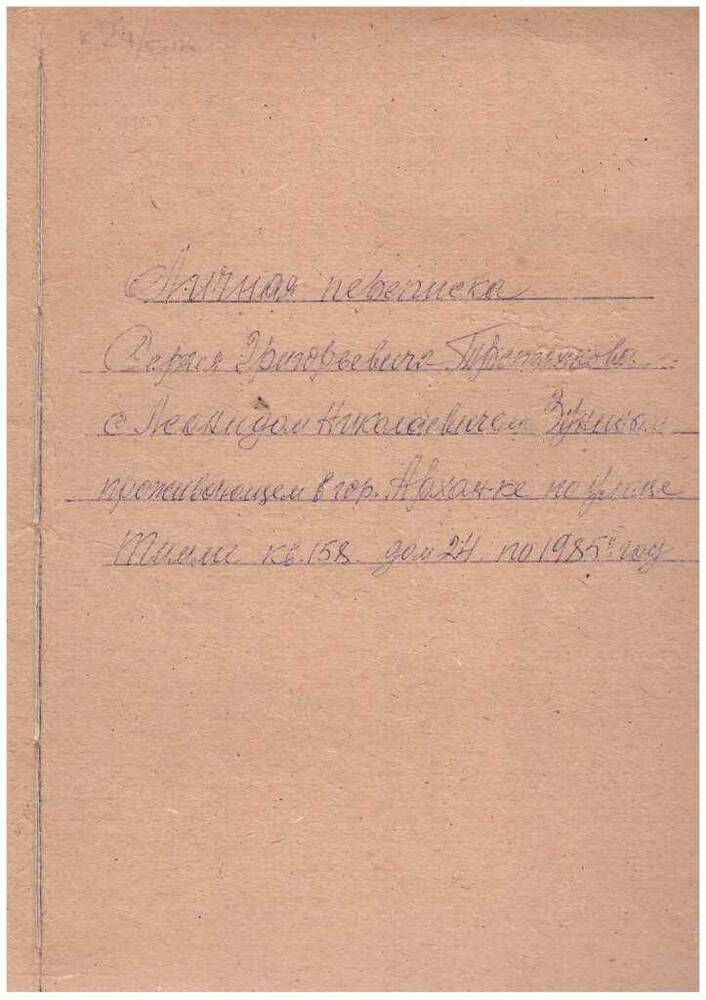 Личная переписка
Сергея Григорьевича Третьякова
с Леонидом Николаевичем
проживающем в гор. Архан-ке по улице
Тимме кв. 158 дом 24 по 1985 г год